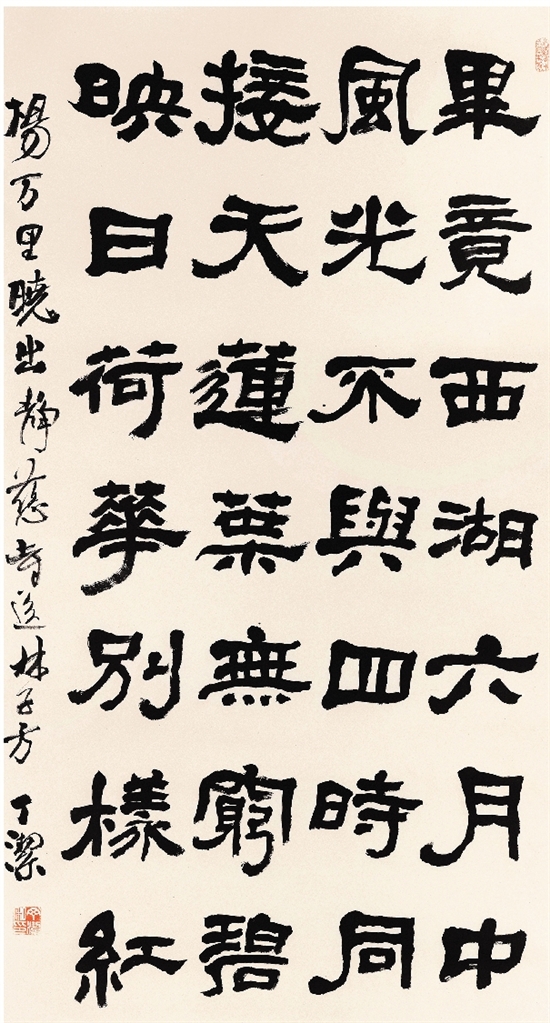 畢竟西湖六月中
風光不與四時同
接天蓮葉無窮碧
映日荷華別樣紅
楊万里曉出靜慈寺送林子方 丁潔